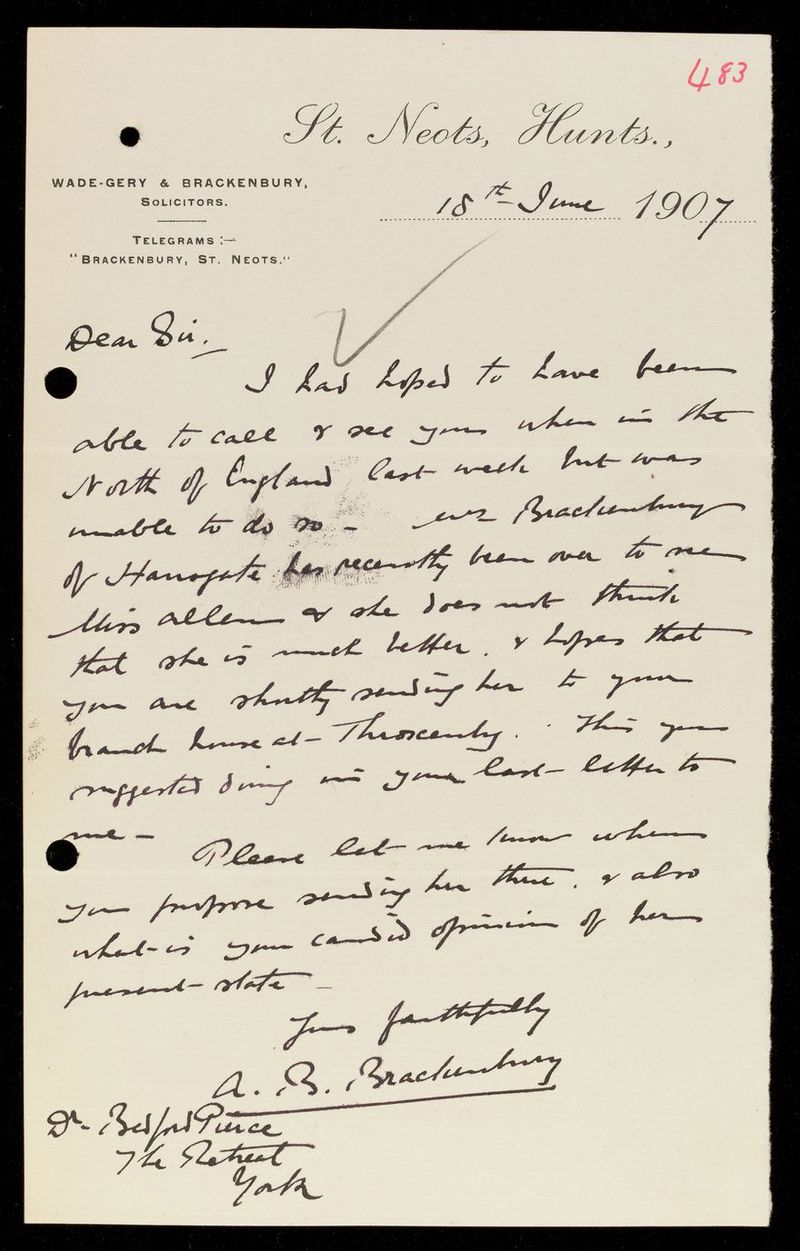 483
St. Neots, Hunts.,
WADE-GERY & BRACKENBURY,
SOLICITORS.
TELEGRAMS:—
"BRACKENBURY, ST. NEOTS."
18th June 1907
Dear Sir.
I had hoped to have been
able to call & see you when in the
North of England last week but was
unable to do so - Mrs Brackenbury
of Harrogate has recently been over to see
Miss Allen & she does not think
that she is much better. & hopes that
you are shortly sending her to your
branch house at Throxenby. This you
suggested doing in your last letter to
me -
Please let me know when
you propose sending her there. & also
what is your candid opinion of her
present state -
Yours faithfully
A. B. Brackenbury
Dr. Bedford Pierce
The Retreat
York